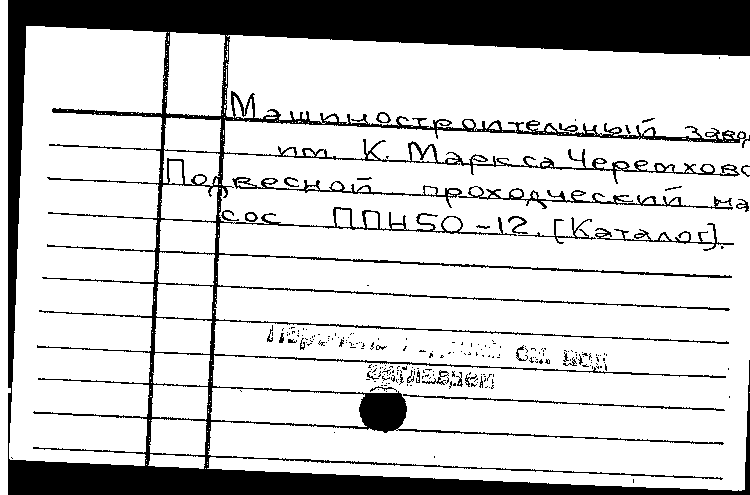 Машиностроительный заво
им. К. Маркса Черемхово
Подвесной проходческий на
сос ППН50-12. [Каталог].
см. под
заглавием